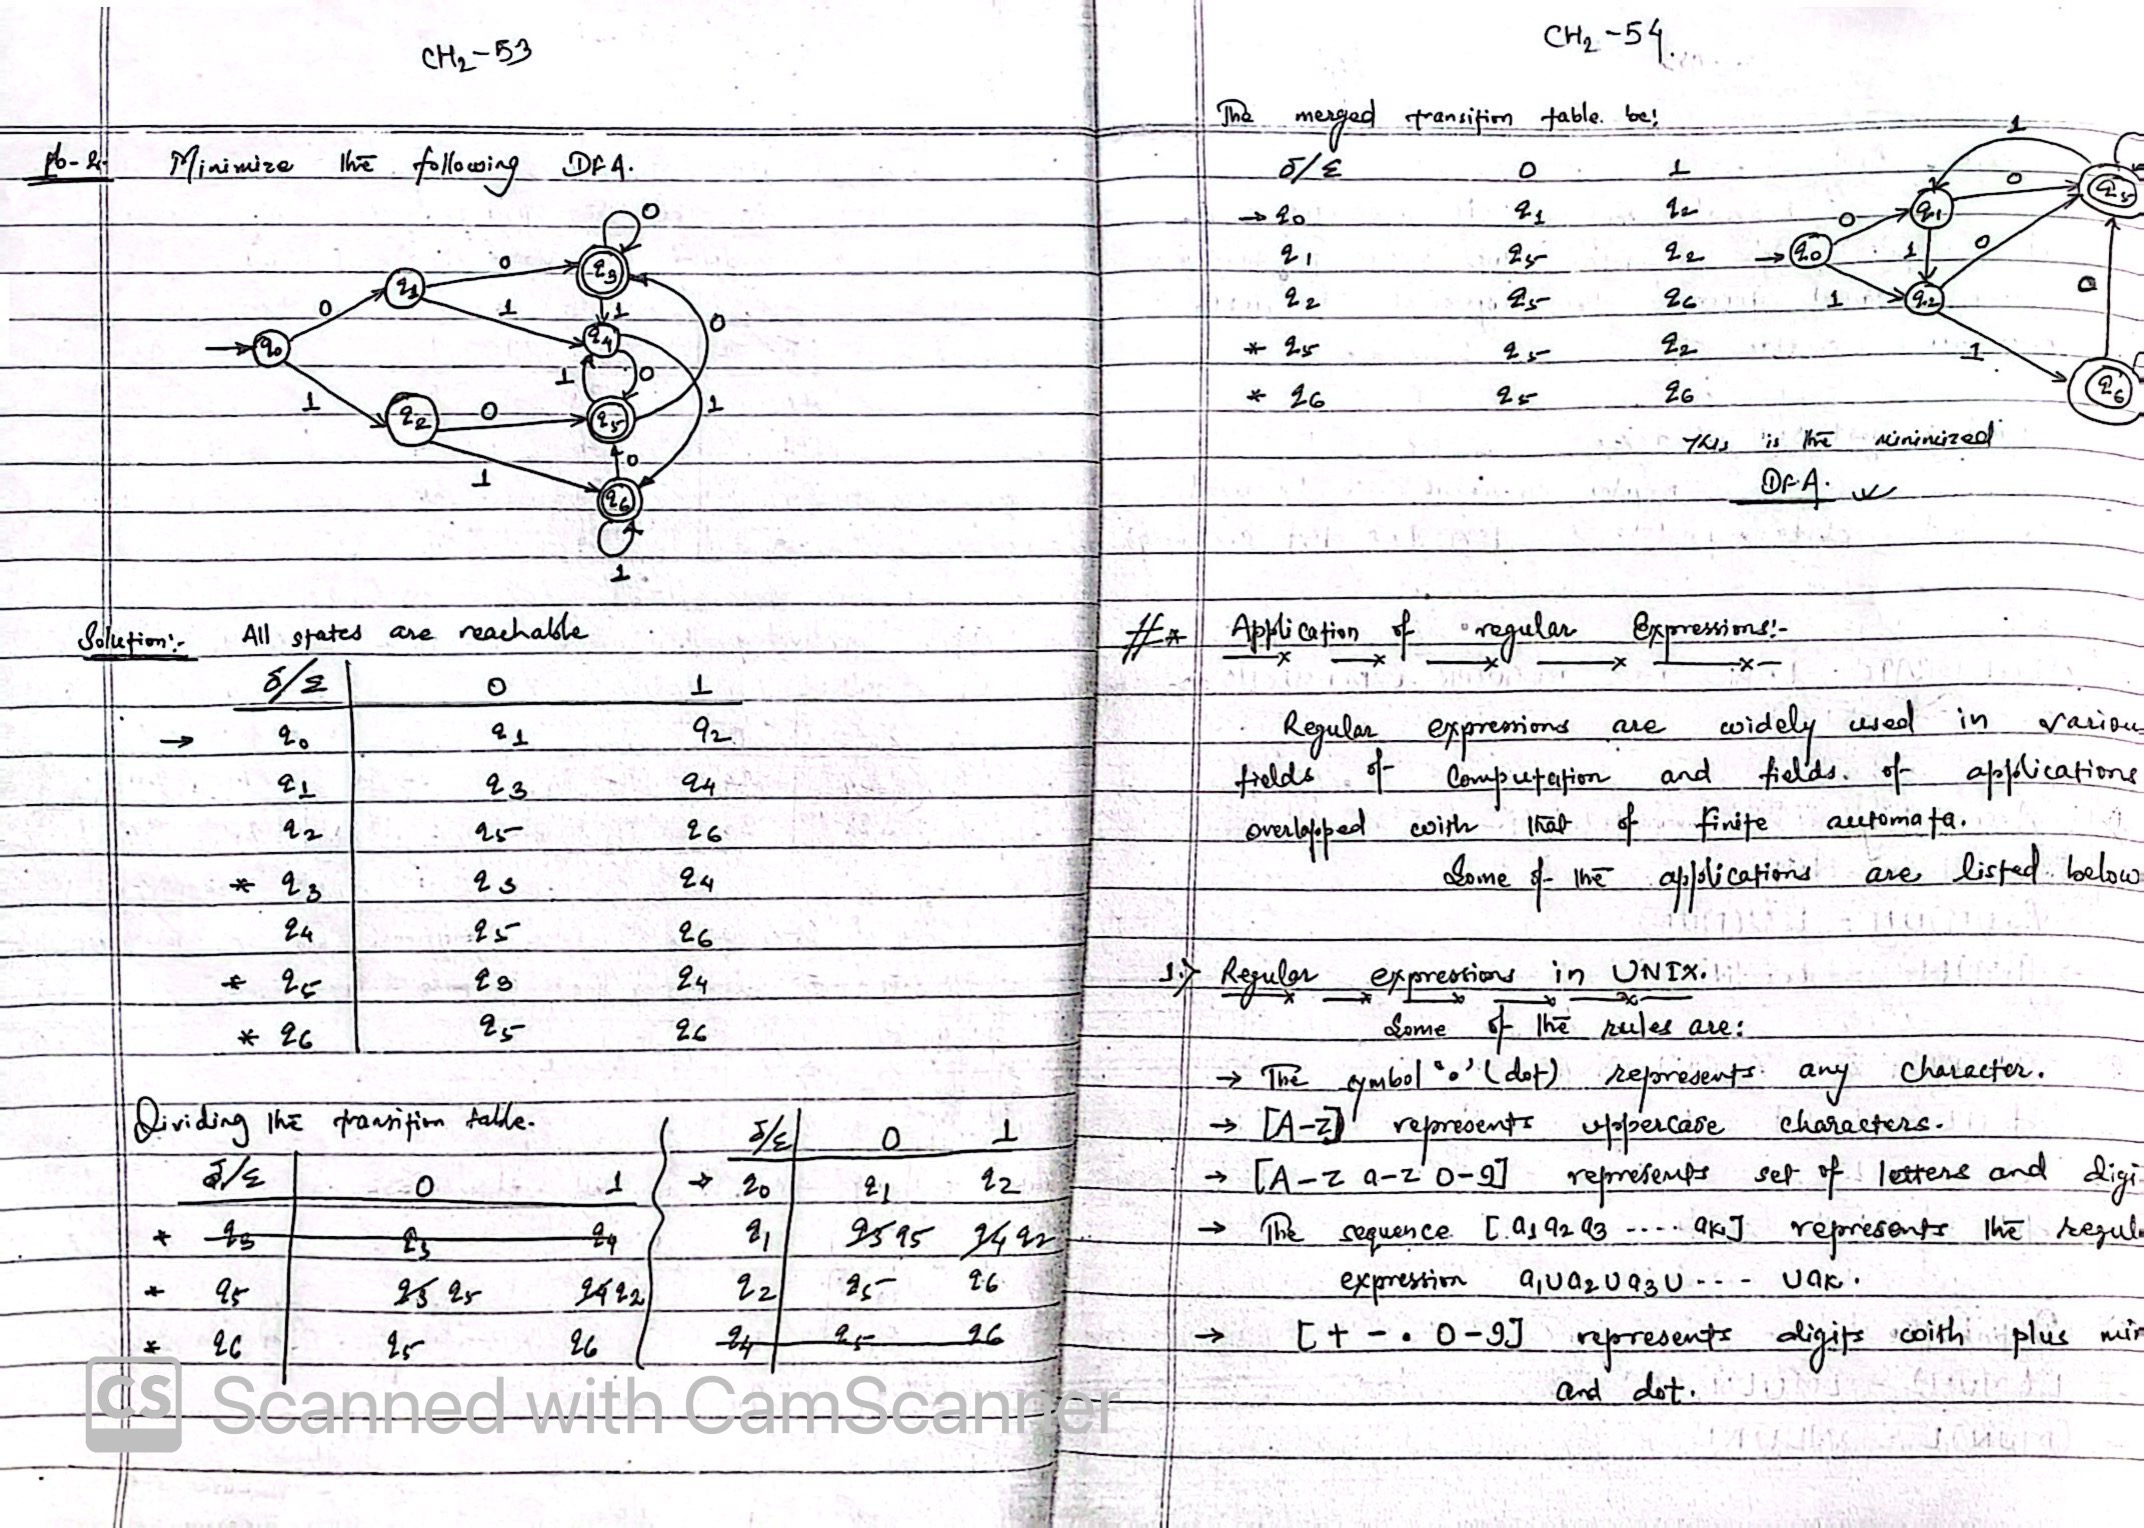 CH2-53
pb-2. Minimize the following DFA.
0
q3
0
q1
0
1
1
q4
0
q0
1
0
1
1
q2
0
q5
0
1
q6
1
Solution:- All states are reachable
δ/Σ 0 1
→ q0 q1 q2
q1 q3 q4
q2 q5 q6
* q3 q3 q4
q4 q5 q6
* q5 q3 q4
* q6 q5 q6
Dividing the transition table.
δ/Σ 0 1
* q3 q3 q4
* q5 q3 q5 q4 q2
* q6 q5 q6
δ/Σ 0 1
→ q0 q1 q2
q1 q3 q5 q4 q2
q2 q5 q6
q4 q5 q6
CS Scanned with CamScanner
CH2-54.
The merged transition table be:
δ/Σ 0 1
→ q0 q1 q2
q1 q5 q2
q2 q5 q6
* q5 q5 q2
* q6 q5 q6
1
q5
0
q1
0
q0
1
0
0
1
q2
1
q6
This is the minimized
DFA.
#* Application of regular Expressions:-
Regular expressions are widely used in various
fields of Computation and fields. of applications
overlapped with that of finite automata.
Some of the applications are listed below
1.) Regular expressions in UNIX.
Some of the rules are:
→ The symbol '.' (dot) represents any character.
→ [A-Z] represents uppercase characters.
→ [A-Z a-z 0-9] represents set of letters and digi
→ The sequence [a1 a2 a3 .... ak] represents the regul
expression a1∪a2∪a3∪--- ∪ak.
→ [+ - . 0-9] represents digits with plus min
and dot.